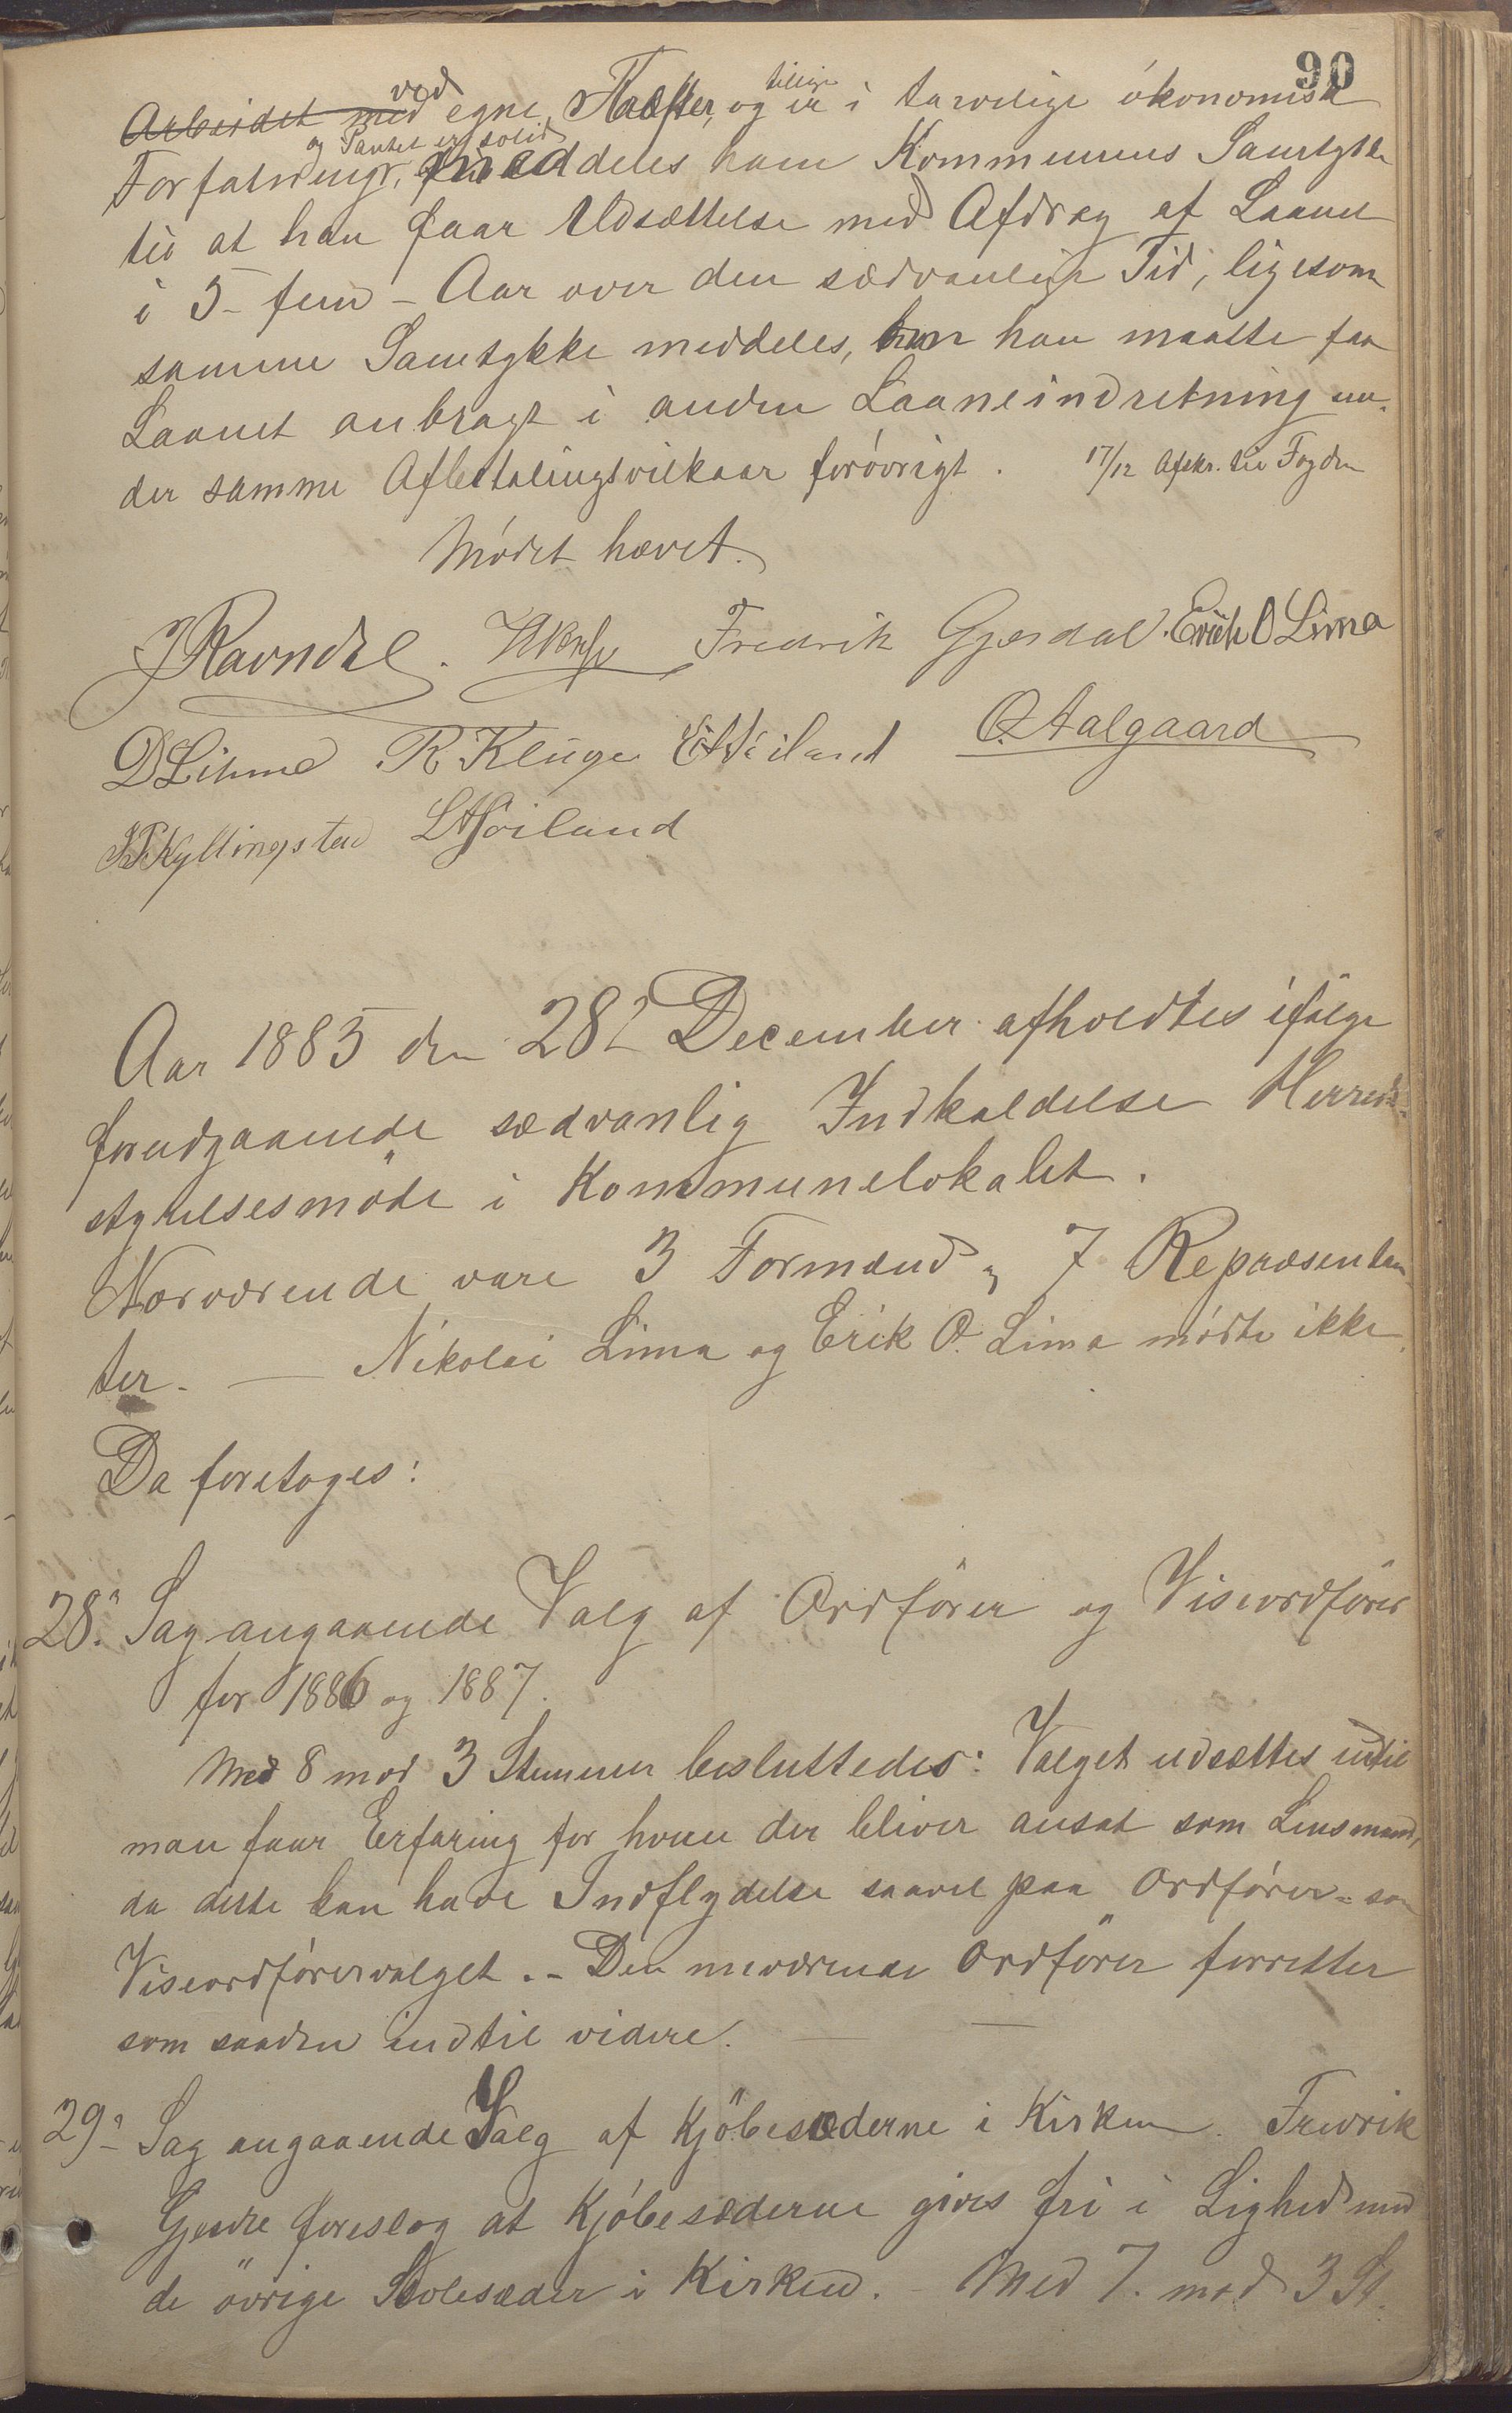 90
ved tillige
Arbeidet med egne Kræfter, og er i tarvelige økonomisk
og Pantet er solid
Forfatninger, meddeles ham Kommunens Samtykke
til at han faar Udsættelse med Afdrag af Laanet
i 5 - fem - Aar over den sædvanlige Tid, ligesom
samme Samtykke meddeles, om han maatte faa
Laanet anbragt i anden Laaneindretning un-
der samme Afbetalingsvilkaar forøvrigt. 17/12 Afskr. til Fogden
Mødet hævet.
J Ravndal. Fredrik Gjesdal. Erick O Lima
D Lihme R Kluge E Høiland O. Aalgaard
Kyllingstad L A Høiland
Aar 1885 den 28de December afholdtes ifølge
forudgaaende sædvanlig Indkaldelse Herreds-
styrelsesmøde i Kommunelokalet.
Nærværende vare 3 Formænd og 7 Repræsentan-
ter. — Nikolai Lima og Erik O. Lima mødte ikke.
Da foretoges:
28. Sag angaaende Valg af Ordfører og Viseordfører
for 1886 og 1887.
Med 8 mod 3 Stemmer besluttedes: Valget udsættes indtil
man faar Erfaring for hvem der bliver ansat som Lensmand,
da dette kan have Indflydelse saavel paa Ordfører- som
Viseordførervalget. - Den nuværende Ordfører forretter
som saadan indtil videre. —
29. Sag angaaende Salg af Kjøbesæderne i Kirken. Fredrik
Gjesdal foreslog at Kjøbesæderne gives fri i Lighed med
de øvrige Stolesæder i Kirken. - Med 7. mod 3 St.